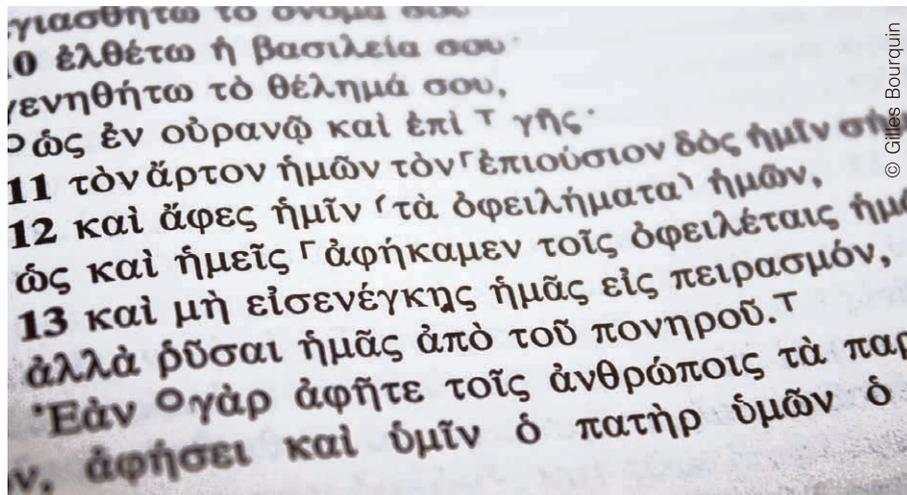 γιασθήτω τὸ ὄνομά σου
10 ἐλθέτω ἡ βασιλεία σου·
γενηθήτω τὸ θέλημά σου,
°ὡς ἐν οὐρανῷ καὶ ἐπὶ ⸆ γῆς·
11 τὸν ἄρτον ἡμῶν τὸν ⸀ἐπιούσιον δὸς ἡμῖν σή
12 καὶ ἄφες ἡμῖν ⸂τὰ ὀφειλήματα⸃ ἡμῶν,
ὡς καὶ ἡμεῖς ⸀ἀφήκαμεν τοῖς ὀφειλέταις ἡμ
13 καὶ μὴ εἰσενέγκῃς ἡμᾶς εἰς πειρασμόν,
ἀλλὰ ῥῦσαι ἡμᾶς ἀπὸ τοῦ πονηροῦ.⸆
Ἐὰν °γὰρ ἀφῆτε τοῖς ἀνθρώποις τὰ παρ
ν, ἀφήσει καὶ ὑμῖν ὁ πατὴρ ὑμῶν ὁ
© Gilles Bourquin